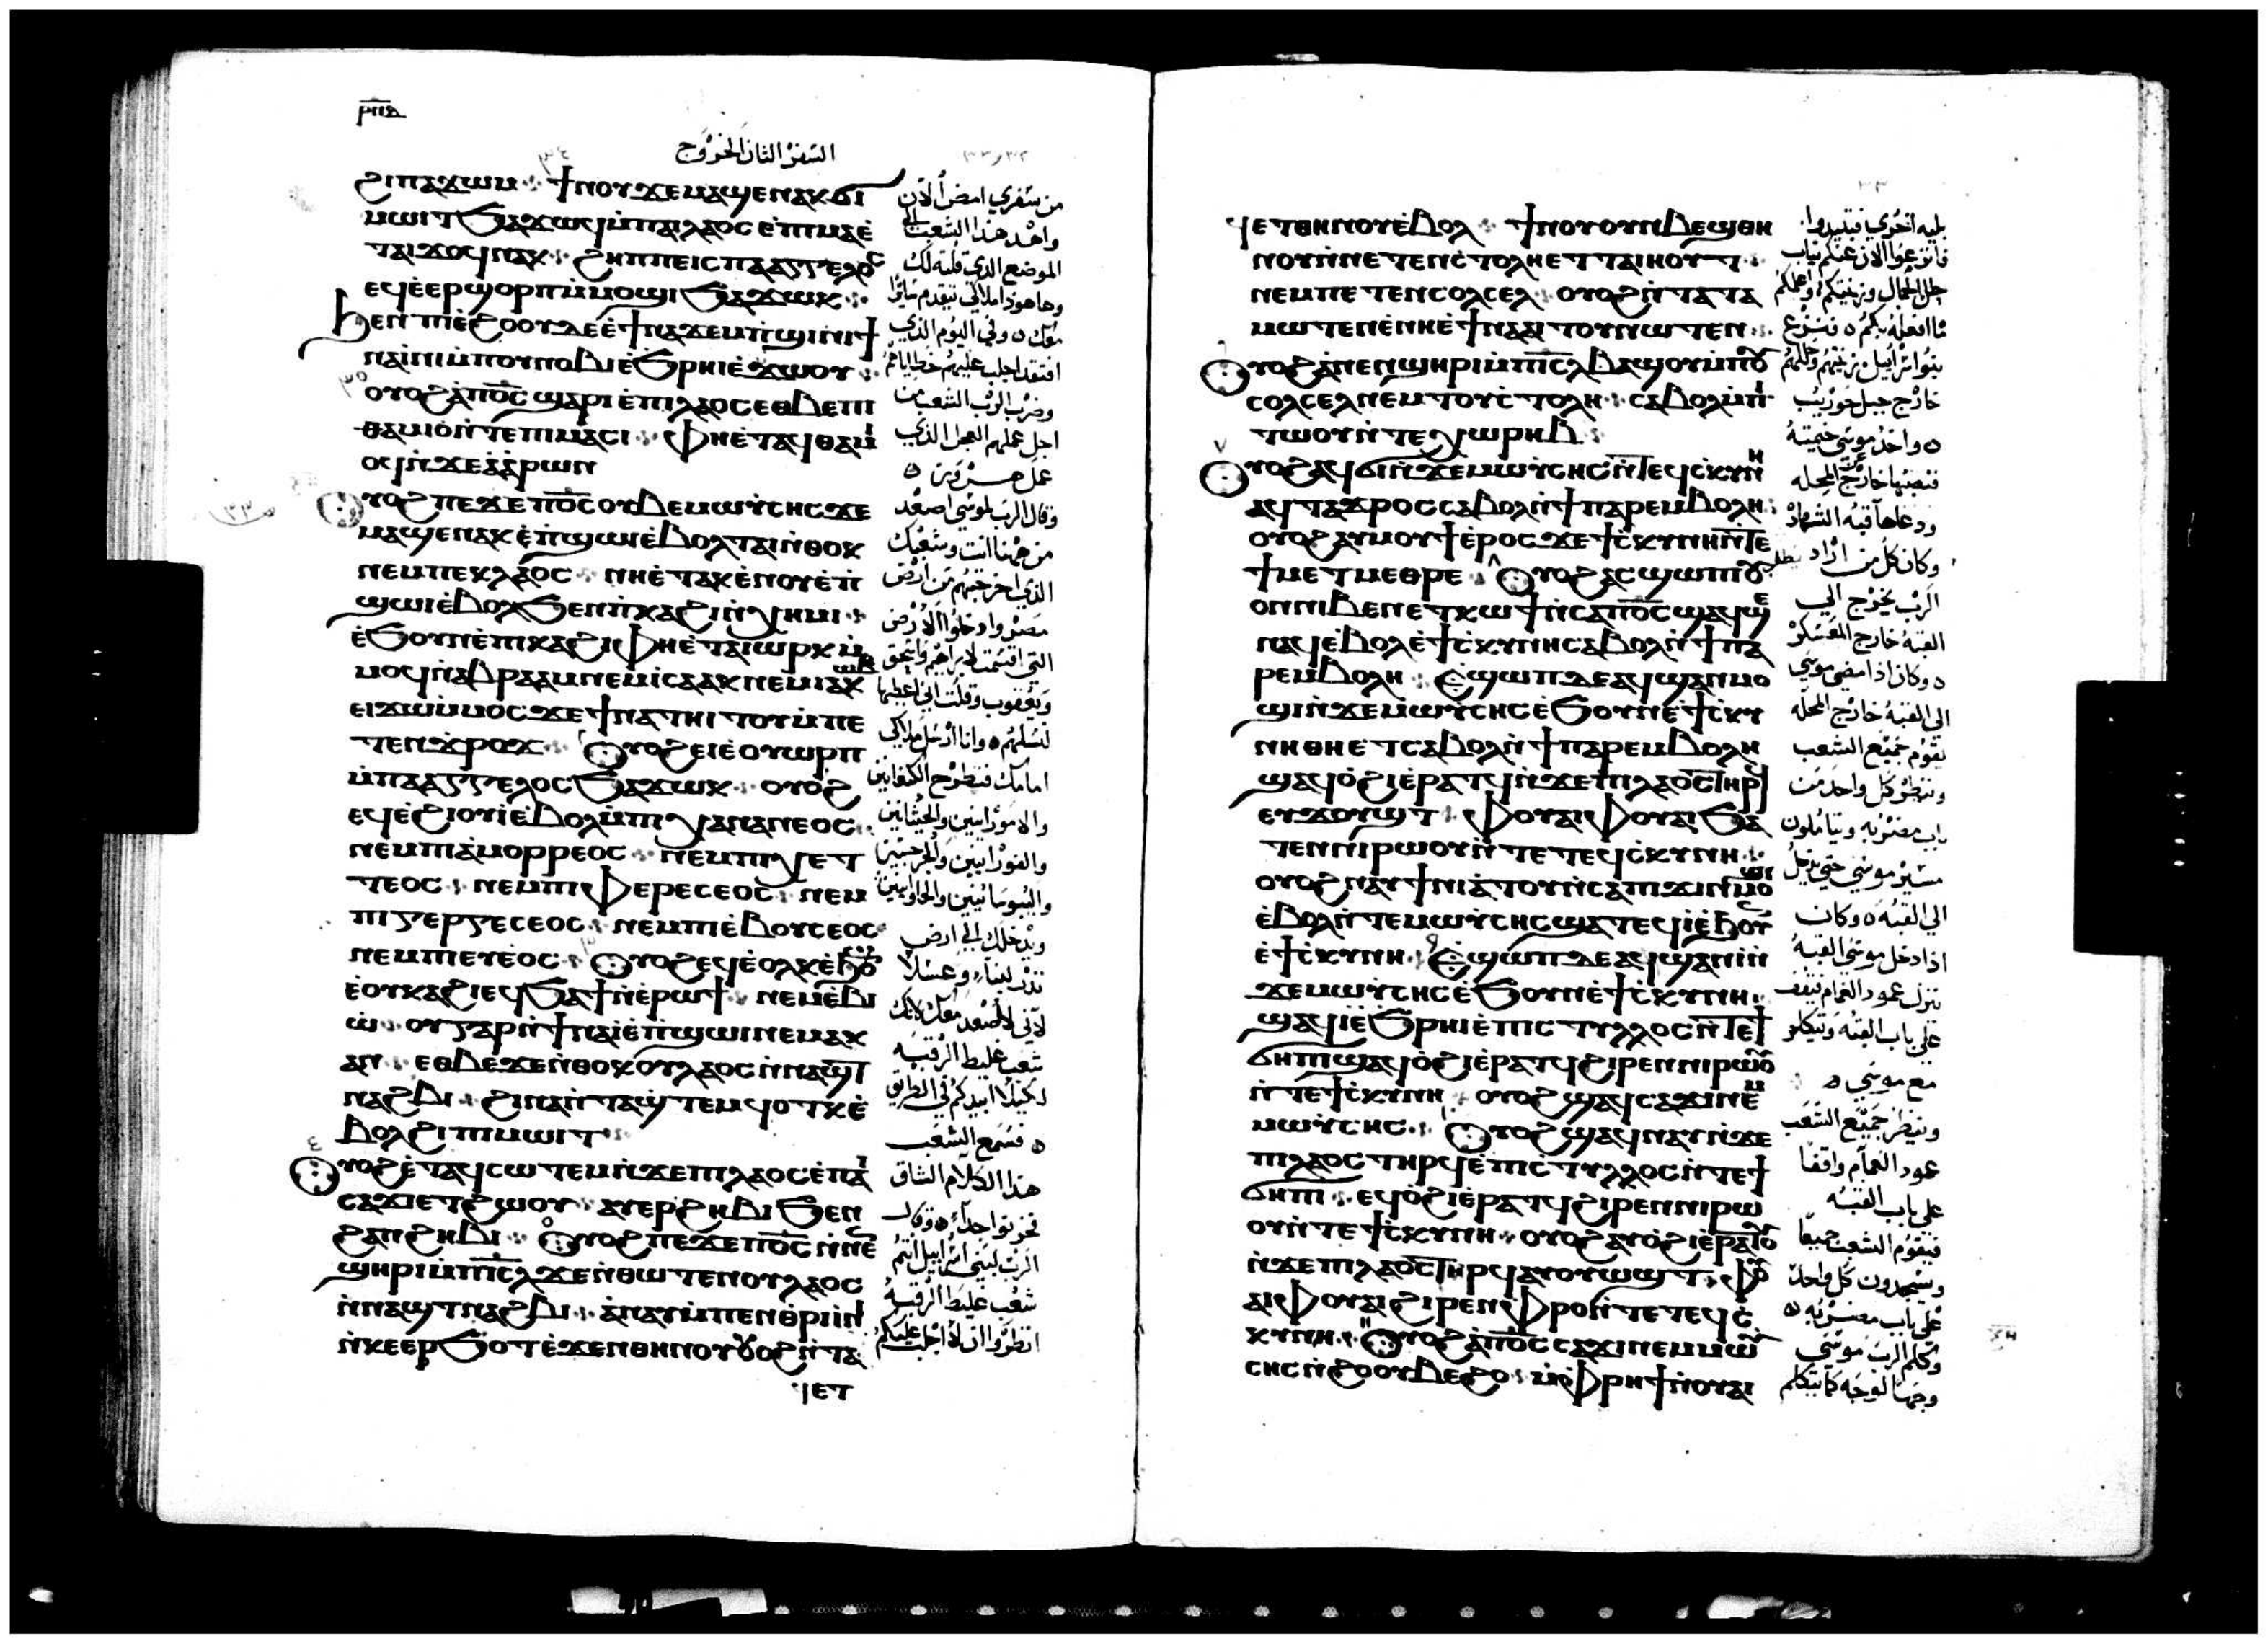 ⲣⲡⲑ
السفر الثان الخروج
ϩⲓⲡⲁϫⲱⲙ ⁘ ϯⲛⲟⲩ ϫⲉ ⲙⲁϣⲉⲛⲁⲕ ϭⲓ
ⲙⲱⲓⲧ ϧⲁϫⲱϥ ⲙ̀ⲡⲁⲓⲗⲁⲟⲥ ⲉ̀ⲡⲓⲙⲁ ⲉ̀
ⲧⲁⲓϫⲟϥ ⲛⲁⲕ ⁘ ϩⲏⲡⲡⲉ ⲓⲥ ⲡⲁⲁⲅⲅⲉⲗⲟⲥ
ⲉϥⲉ̀ⲉⲣϣⲟⲣⲡ ⲙ̀ⲙⲟϣⲓ ϧⲁϫⲱⲕ ⁘
ϧⲉⲛ ⲡⲓⲉ̀ϩⲟⲟⲩ ⲇⲉ ⲉ̀ϯⲛⲁϫⲉⲙⲡ̀ϣⲓⲛⲓ ϯ
ⲛⲁⲓ̀ⲛⲓ ⲙ̀ⲡⲟⲩⲛⲟⲃⲓ ⲉ̀ϧⲣⲏⲓ ⲉ̀ϫⲱⲟⲩ ⁘
ⲟⲩⲟϩ ⲁ̀ⲡⲟ̅ⲥ̅ ϣⲁⲣⲓ ⲉ̀ⲡⲓⲗⲁⲟⲥ ⲉⲑⲃⲉ ⲡⲓ
ⲑⲁⲙⲓⲟ̀ ⲛ̀ⲧⲉ ⲡⲓⲙⲁⲥⲓ ⁘ ⲫⲏⲉ̀ⲧⲁϥⲑⲁⲙⲓ
ⲟϥ ⲛ̀ϫⲉ ⲁ̀ⲁ̀ⲣⲱⲛ
ⲟⲩⲟϩ ⲡⲉϫⲉ ⲡⲟ̅ⲥ̅ ⲟⲩⲃⲉ ⲙⲱⲩ̀ⲥⲏⲥ ϫⲉ
ⲙⲁϣⲉⲛⲁⲕ ⲉ̀ⲡ̀ϣⲱⲓ ⲉ̀ⲃⲟⲗ ⲧⲁⲓ ⲛ̀ⲑⲟⲕ
ⲛⲉⲙ ⲡⲉⲕⲗⲁⲟⲥ ⁘ ⲛⲏⲉ̀ⲧⲁⲕⲉ̀ⲛⲟⲩ ⲉ̀ⲡ̀
ϣⲱⲓ ⲉ̀ⲃⲟⲗ ϧⲉⲛ ⲡ̀ⲕⲁϩⲓ ⲛ̀ⲭⲏⲙⲓ ⁘
ⲉ̀ϧⲟⲩⲛ ⲉ̀ⲡⲓⲕⲁϩⲓ ⲫⲏⲉ̀ⲧⲁⲓⲱⲣⲕ ⲙ̀
ⲙⲟϥ ⲛ̀ⲁⲃⲣⲁⲁⲙ ⲛⲉⲙ ⲓ̀ⲥⲁⲁⲕ ⲛⲉⲙ ⲓⲁⲕⲱⲃ
ⲉⲓϫⲱ ⲙ̀ⲙⲟⲥ ϫⲉ ϯⲛⲁⲧⲏⲓⲧⲟⲩ ⲙ̀ⲡⲉ
ⲧⲉⲛϫ̀ⲣⲟϫ ⁘ ⲟⲩⲟϩ ⲉⲓⲉ̀ⲟⲩⲱⲣⲡ
ⲙ̀ⲡⲁⲁⲅⲅⲉⲗⲟⲥ ϧⲁϫⲱⲕ ⁘ ⲟⲩⲟϩ
ⲉϥⲉ̀ϩⲓⲟⲩⲓ̀ ⲉ̀ⲃⲟⲗ ⲙ̀ⲡⲓⲭⲁⲛⲁⲛⲉⲟⲥ ⁘
ⲛⲉⲙ ⲡⲓⲁ̀ⲙⲟⲣⲣⲉⲟⲥ ⁘ ⲛⲉⲙ ⲡⲓⲭⲉⲧ
ⲧⲉⲟⲥ ⁘ ⲛⲉⲙ ⲡⲓⲫⲉⲣⲉⲥⲉⲟⲥ ⁘ ⲛⲉⲙ
ⲡⲓⲅⲉⲣⲅⲉⲥⲉⲟⲥ ⁘ ⲛⲉⲙ ⲡⲓⲉ̀ⲃⲟⲩⲥⲉⲟⲥ
ⲛⲉⲙ ⲡⲓⲉⲩⲉ̀ⲟⲥ ⁘ ⲟⲩⲟϩ ⲉϥⲉ̀ⲟⲗⲕ ⲉ̀ϧⲟⲩⲛ
ⲉ̀ⲟⲩⲕⲁϩⲓ ⲉϥϧⲁϯ ⲛ̀ⲉⲣⲱϯ ⁘ ⲛⲉⲙ ⲉ̀ⲃⲓ
ⲱ̀ ⁘ ⲟⲩ ⲅⲁⲣ ⲛ̀ϯⲛⲁⲓ̀ ⲉ̀ⲡ̀ϣⲱⲓ ⲛⲉⲙⲁⲕ
ⲁⲛ ⁘ ⲉⲑⲃⲉ ϫⲉ ⲛ̀ⲑⲟⲕ ⲟⲩⲗⲁⲟⲥ ⲛ̀ⲛⲁϣⲧ
ⲛⲁϩⲃⲓ ⁘ ϩⲓⲛⲁ ⲛ̀ⲧⲁϣ̀ⲧⲉⲙϥⲟⲧⲕ ⲉ̀
ⲃⲟⲗ ϩⲓ ⲡⲓⲙⲱⲓⲧ ⁘
ⲟⲩⲟϩ ⲉ̀ⲧⲁϥⲥⲱⲧⲉⲙ ⲛ̀ϫⲉ ⲡⲓⲗⲁⲟⲥ ⲉ̀ⲡⲁⲓ
ⲥⲁϫⲓ ⲉⲧϩⲱⲟⲩ ⁘ ⲁⲩⲉⲣϩⲏⲃⲓ ϧⲉⲛ
ϩⲁⲛϩⲏⲃⲓ ⁘ ⲟⲩⲟϩ ⲡⲉϫⲉ ⲡⲟ̅ⲥ̅ ⲛ̀ⲛⲉⲛ
ϣⲏⲣⲓ ⲙ̀ⲡⲓ̅ⲥ̅ⲗ̅ ϫⲉ ⲛ̀ⲑⲱⲧⲉⲛ ⲟⲩⲗⲁⲟⲥ
ⲛ̀ⲛⲁϣⲧ ⲛⲁϩⲃⲓ ⁘ ⲁ̀ⲛⲁⲩ ⲙ̀ⲡⲉⲛⲑⲣⲓⲓ̀ⲛⲓ
ⲛ̀ⲕⲉⲉⲣϧⲟⲧ ⲉ̀ϫⲉⲛ ⲑⲏⲛⲟⲩ ⲟⲩⲟϩ ⲛ̀ⲧⲁ
ϥⲉⲧ
من سفري امض الآن
واهد هذا الشعب الى
الموضع الذي قلته لك
وها هوذا ملاكي يتقدم سايرا
معك ٥ وفي اليوم الذي
افتقد اجلب عليهم خطاياهم
وضرب الرب الشعب من
اجل عملهم العجل الذي
عمل هرون ٥
وقال الرب لموسى اصعد
من ههنا انت وشعبك
الذي اخرجتهم من ارض
مصر وادخلوا الارض
التي اقسمت لابراهيم واسحق
ويعقوب وقلت اني اعطيها
لنسلهم ٥ وانا ارسل ملاكي
امامك فتطرح الكنعانيين
والامورانيين والحيثانيين
ويدخلك الى ارض
تدر لبنا وعسلا
لاني لا اصعد معك لانك
شعب غليظ الرقبه
لكيلا ابيدكم في الطريق
٥ فسمع الشعب
هذا الكلام الشاق
الرب لبني اسرائيل انتم
شعب غليظ الرقبه
انظروا ان لا اجلب عليكم
ϥⲉⲧ ⲑⲏⲛⲟⲩ ⲉ̀ⲃⲟⲗ ⁘ ϯⲛⲟⲩ ⲟⲩⲛ ⲃⲉϣ ⲑⲏ
ⲛⲟⲩ ⲛ̀ⲛⲉⲧⲉⲛⲥ̀ⲧⲟⲗⲏ ⲉⲧⲧⲁⲓⲏⲟⲩⲧ ⁘
ⲛⲉⲙ ⲡⲉⲧⲉⲛⲥⲟⲗⲥⲉⲗ ⁘ ⲟⲩⲟϩ ⲛ̀ⲧⲁⲧⲁ
ⲙⲱⲧⲉⲛ ⲉ̀ⲛⲏⲉ̀ϯⲛⲁⲁⲓⲧⲟⲩ ⲛⲱⲧⲉⲛ ⁘
ⲟⲩⲟϩ ⲁ̀ⲛⲉⲛϣⲏⲣⲓ ⲙ̀ⲡⲓ̅ⲥ̅ⲗ̅ ⲃⲁϣⲟⲩ ⲙ̀ⲡⲟⲩ
ⲥⲟⲗⲥⲉⲗ ⲛⲉⲙ ⲧⲟⲩⲥ̀ⲧⲟⲗⲏ ⁘ ⲥⲁⲃⲟⲗ ⲙ̀ⲡⲓ
ⲧⲱⲟⲩ ⲛ̀ⲧⲉ ⲭⲱⲣⲏⲃ ⁘
ⲟⲩⲟϩ ⲁϥϭⲓ ⲛ̀ϫⲉ ⲙⲱⲩ̀ⲥⲏⲥ ⲛ̀ⲧⲉϥⲥⲕⲩⲛⲏ
ⲁϥⲧⲁϫⲣⲟⲥ ⲥⲁⲃⲟⲗ ⲛ̀ϯⲡⲁⲣⲉⲙⲃⲟⲗⲏ ⁘
ⲟⲩⲟϩ ⲁⲩⲙⲟⲩϯ ⲉ̀ⲣⲟⲥ ϫⲉ ϯⲥ̀ⲕⲩⲛⲏ ⲛ̀ⲧⲉ
ϯⲙⲉⲧⲙⲉⲑⲣⲉ ⁘ ⲟⲩⲟϩ ⲁⲥϣⲱⲡⲓ ⲟⲩ
ⲟⲛ ⲛⲓⲃⲉⲛ ⲉⲧⲕⲱϯ ⲛ̀ⲥⲁ ⲡⲟ̅ⲥ̅ ϣⲁϥϣⲉ
ⲛⲁϥ ⲉ̀ⲃⲟⲗ ⲉ̀ϯⲥ̀ⲕⲩⲛⲏ ⲥⲁⲃⲟⲗ ⲛ̀ϯⲡⲁ
ⲣⲉⲙⲃⲟⲗⲏ ⁘ ⲉ̀ϣⲱⲡ ⲇⲉ ⲁϥϣⲁⲛⲙⲟ
ϣⲓ ⲛ̀ϫⲉ ⲙⲱⲩ̀ⲥⲏⲥ ⲉ̀ϧⲟⲩⲛ ⲉ̀ϯⲥ̀ⲕⲩ
ⲛⲏ ⲑⲏⲉ̀ⲧⲥⲁⲃⲟⲗ ⲛ̀ϯⲡⲁⲣⲉⲙⲃⲟⲗⲏ
ϣⲁϥⲟ̀ϩⲓ ⲉ̀ⲣⲁⲧϥ ⲛ̀ϫⲉ ⲡⲓⲗⲁⲟⲥ ⲧⲏⲣϥ
ⲉⲩϫⲟⲩϣⲧ ⁘ ⲫⲟⲩⲁⲓ ⲫⲟⲩⲁⲓ ϧⲁ
ⲧⲉⲛ ⲛⲓⲣⲱⲟⲩ ⲛ̀ⲧⲉ ⲧⲉϥⲥ̀ⲕⲩⲛⲏ ⁘
ⲟⲩⲟϩ ⲛⲁⲩϯⲛⲓⲁ̀ⲧⲟⲩ ⲛ̀ⲥⲁ ⲡϫⲓⲛⲙⲟϣⲓ
ⲉ̀ⲃⲟⲗ ⲛ̀ⲧⲉ ⲙⲱⲩ̀ⲥⲏⲥ ϣⲁⲧⲉϥⲓ̀ ⲉ̀ϧⲟⲩⲛ
ⲉ̀ϯⲥ̀ⲕⲩⲛⲏ ⁘ ⲉ̀ϣⲱⲡ ⲇⲉ ⲁϥϣⲁⲛⲓ̀ ⲛ̀
ϫⲉ ⲙⲱⲩ̀ⲥⲏⲥ ⲉ̀ϧⲟⲩⲛ ⲉ̀ϯⲥ̀ⲕⲩⲛⲏ ⁘
ϣⲁϥⲓ̀ ⲉ̀ϧⲣⲏⲓ ⲉ̀ⲡⲓⲥⲧⲩⲗⲗⲟⲥ ⲛ̀ⲧⲉ ϯ
ϭⲏⲡⲓ ϣⲁϥⲟ̀ϩⲓ ⲉ̀ⲣⲁⲧϥ ϩⲓⲣⲉⲛ ⲛⲓⲣⲱⲟⲩ
ⲛ̀ⲧⲉ ϯⲥ̀ⲕⲩⲛⲏ ⁘ ⲟⲩⲟϩ ϣⲁϥⲥⲁϫⲓ ⲛⲉⲙ
ⲙⲱⲩ̀ⲥⲏⲥ ⁘ ⲟⲩⲟϩ ϣⲁϥⲛⲁⲩ ⲛ̀ϫⲉ
ⲡⲓⲗⲁⲟⲥ ⲧⲏⲣϥ ⲉ̀ⲡⲓⲥⲧⲩⲗⲗⲟⲥ ⲛ̀ⲧⲉ ϯ
ϭⲏⲡⲓ ⁘ ⲉϥⲟ̀ϩⲓ ⲉ̀ⲣⲁⲧϥ ϩⲓⲣⲉⲛ ⲛⲓⲣⲱ
ⲟⲩ ⲛ̀ⲧⲉ ϯⲥ̀ⲕⲩⲛⲏ ⁘ ⲟⲩⲟϩ ⲁⲩⲟ̀ϩⲓ ⲉ̀ⲣⲁⲧⲟⲩ
ⲛ̀ϫⲉ ⲡⲓⲗⲁⲟⲥ ⲧⲏⲣϥ ⲁⲩⲟⲩⲱϣⲧ ⁘ ⲫⲟⲩ
ⲁⲓ ⲫⲟⲩⲁⲓ ϩⲓⲣⲉⲛ ⲫⲣⲟ ⲛ̀ⲧⲉ ⲧⲉϥⲥ̀
ⲕⲩⲛⲏ ⁘ ⲟⲩⲟϩ ⲁ̀ⲡⲟ̅ⲥ̅ ⲥⲁϫⲓ ⲛⲉⲙ ⲙⲱⲩ̀
ⲥⲏⲥ ⲛ̀ϩⲟ ⲟⲩⲃⲉ ϩⲟ ⁘ ⲙ̀ⲫⲣⲏϯ ⲛ̀ⲟⲩⲁⲓ
بليه اخرى فتبيدوا
فانزعوا الان عنكم ثياب
حلل الجمال وزينتكم واعلمكم
ما افعله بكم ٥ فنزع
بنوا اسراييل زينتهم وحللهم
خارج جبل حوريب
٥ واخذ موسى خيمته
فنصبها خارج المحله
ودعاها قبة الشهاده
وكان كل من اراد يطلب
الرب يخرج الى
القبه خارج المعسكر
٥ وكان اذا مضى موسى
الى القبه خارج المحله
يقوم جميع الشعب
وينظر كل واحد من
باب مضربه ويتاملون
مسير موسى حتى يدخل
الى القبه ٥ وكان
اذا دخل موسى القبه
ينزل عمود الغمام فيقف
على باب القبه ويتكلم
مع موسى ٥
وينظر جميع الشعب
عمود الغمام واقفا
على باب القبه
فيقوم الشعب جميعا
ويسجدون كل واحد
على باب مضربه ٥
وكلم الرب موسى
وجها لوجه كما يتكلم